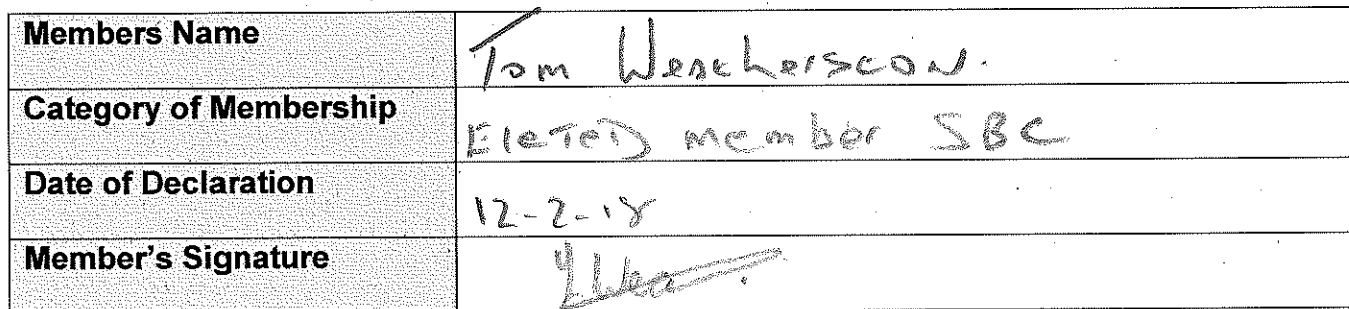 Members Name Tom
Category of Membership EleTeD member SBC
Date of Declaration 12-2-18
Member's Signature